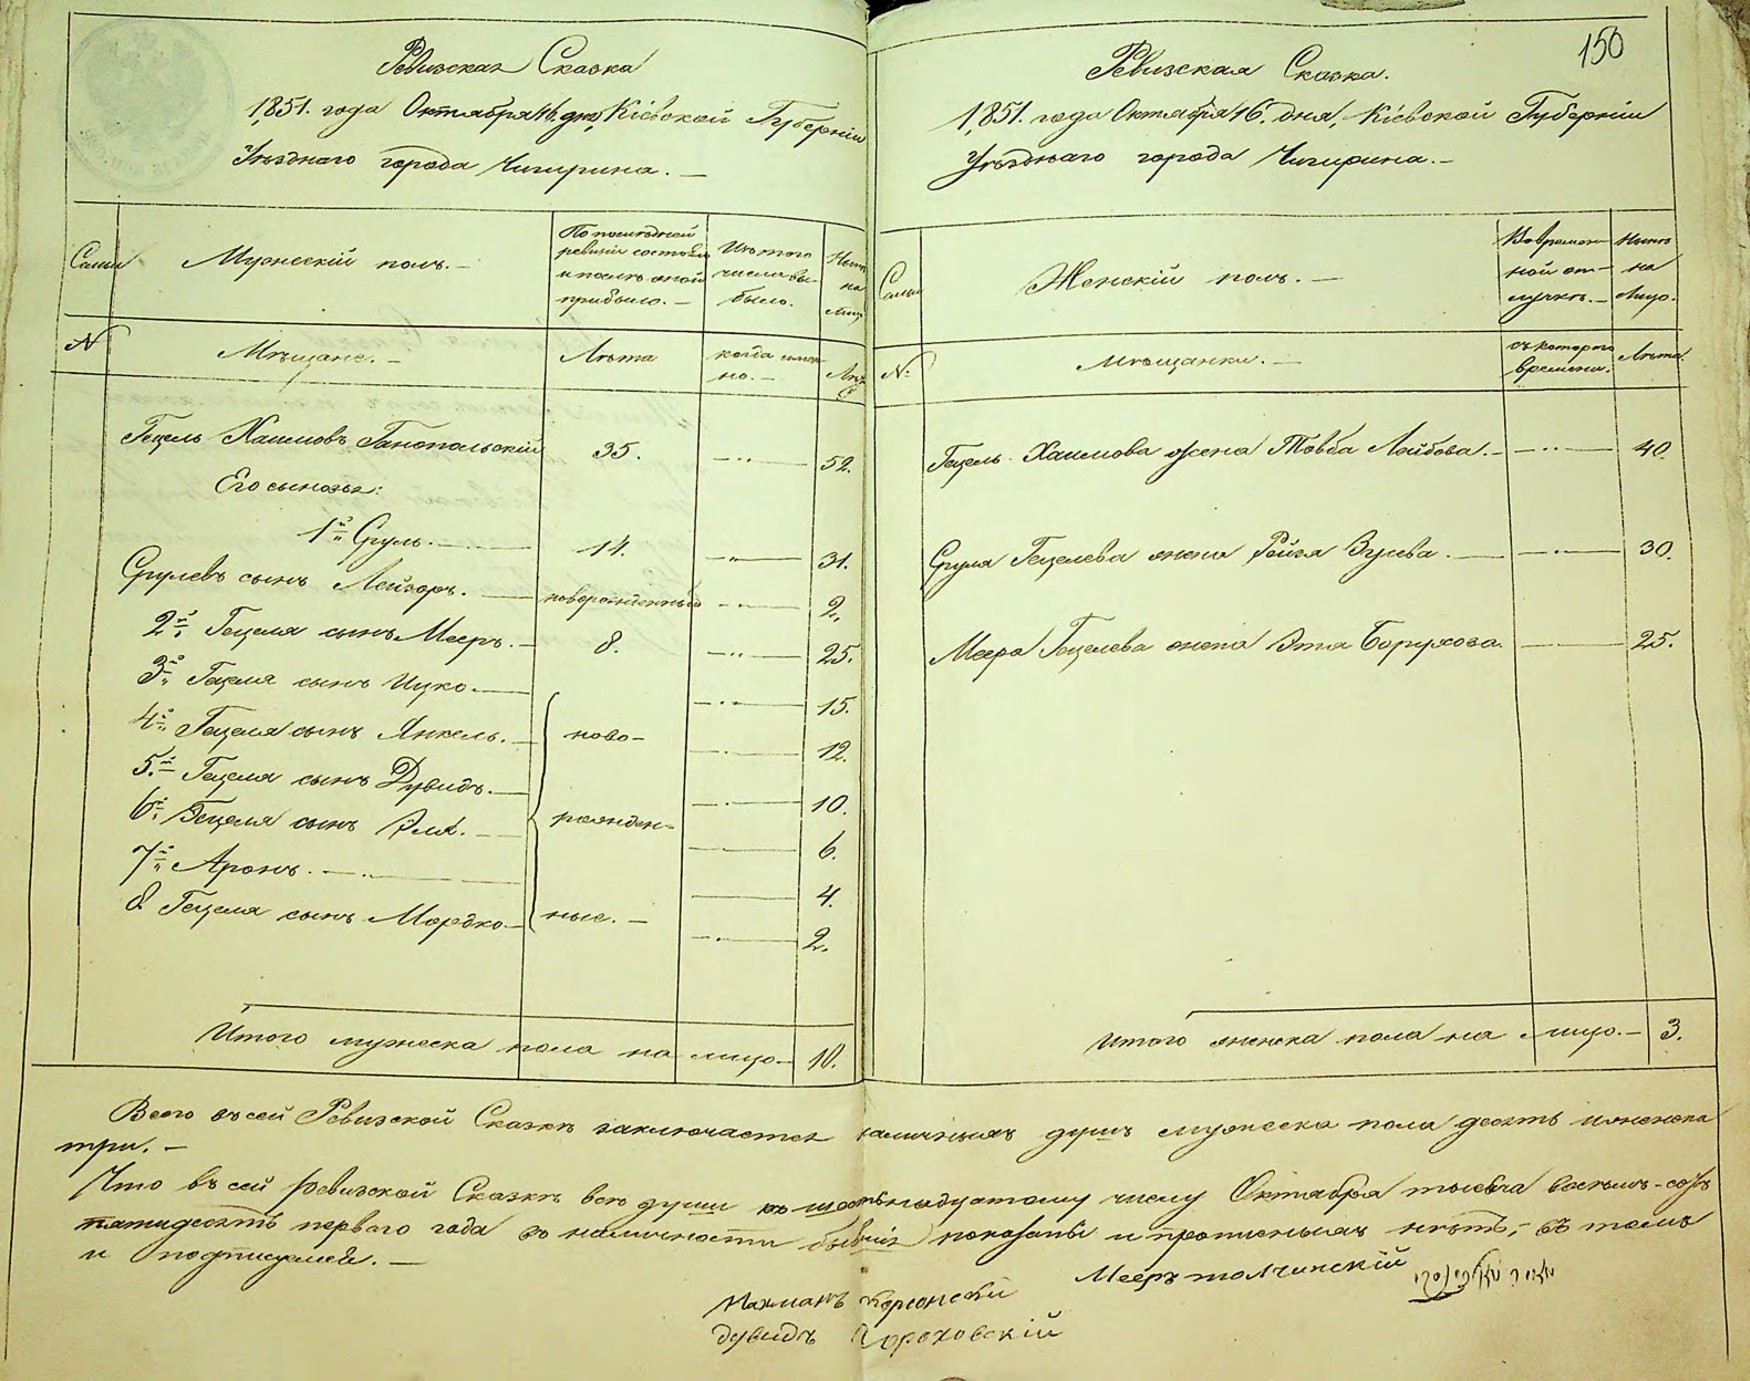 Ревизская Сказка
1851. года Октября 16. дня, Кіевской Губерніи
Уѣзднаго города Чигирина. —
Семьи
Мужескій полъ. —
По послѣдней
ревизіи состояло
и послѣ оной
прибыло. —
Изъ того
числа вы-
было.
Нынѣ
на
лицо
N
Мѣщане. —
Лѣта
когда имен-
но. —
Лѣта
Гецель Хаимовъ Ганопольскій 35. 52.
Его сыновья:
1й Сруль. 14. 31.
Срулевъ сынъ Лейзоръ. новорожденный 2.
2й Гецеля сынъ Мееръ. 8. 25.
3й Гецеля сынъ Ицко. 15.
4й Гецеля сынъ Янкель. ново- 12.
5й Гецеля сынъ Дувидъ. 10.
6й Гецеля сынъ Эля. рожден- 6.
7й Аронъ. 4.
8 Гецеля сынъ Мордко ные. — 2.
Итого мужеска пола на лицо — 10.
150
Ревизская Сказка.
1851. года Октября 16. дня, Кіевской Губерніи
Уѣзднаго города Чигирина. —
Семьи
Женскій полъ. —
Во времен-
ной от-
лучкѣ. —
Нынѣ
на
лицо.
N.
Мѣщанки. —
съ котораго
времени.
Лѣта.
Гецель Хаимова жена Товба Лейбова. — 40.
Сруля Гецелева жена Рейзя Зулева. 30.
Меера Гецелева жена Этя Борухова 25.
Итого женска пола на лицо. — 3.
Всего въ сей Ревизской Сказкѣ заключается наличныхъ душъ мужеска пола десять и женска
три. —
Что въ сей Ревизской Сказкѣ всѣ души къ шестьнадцатому числу Октября тысяча восемь-сотъ
пятидесятъ перваго года въ наличности бывшіе показаны и прописныхъ нѣтъ, — въ томъ
и подписуемся. —
Мееръ толчинскій
Нахманъ Корсонскій
дувидъ Гороховскій